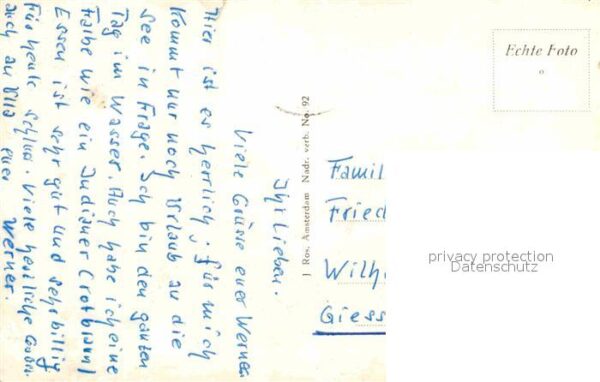 Ihr Lieben.
Viele Grüsse euer Werner.
Hier ist es herrlich, für mich
kommt nur noch Urlaub an die
See in Frage. Ich bin den ganzen
Tag im Wasser. Auch habe ich eine
Farbe wie ein Indianer (rotbraun)
Essen ist sehr gut und sehr billig
Für heute Schluss. Viele herzliche
auch an euer Werner.
J Ros. Amsterdam Nadr. verb. No. 92
Echte Foto
Famil
Fried
Wilh
Giess
privacy protection
Datenschutz